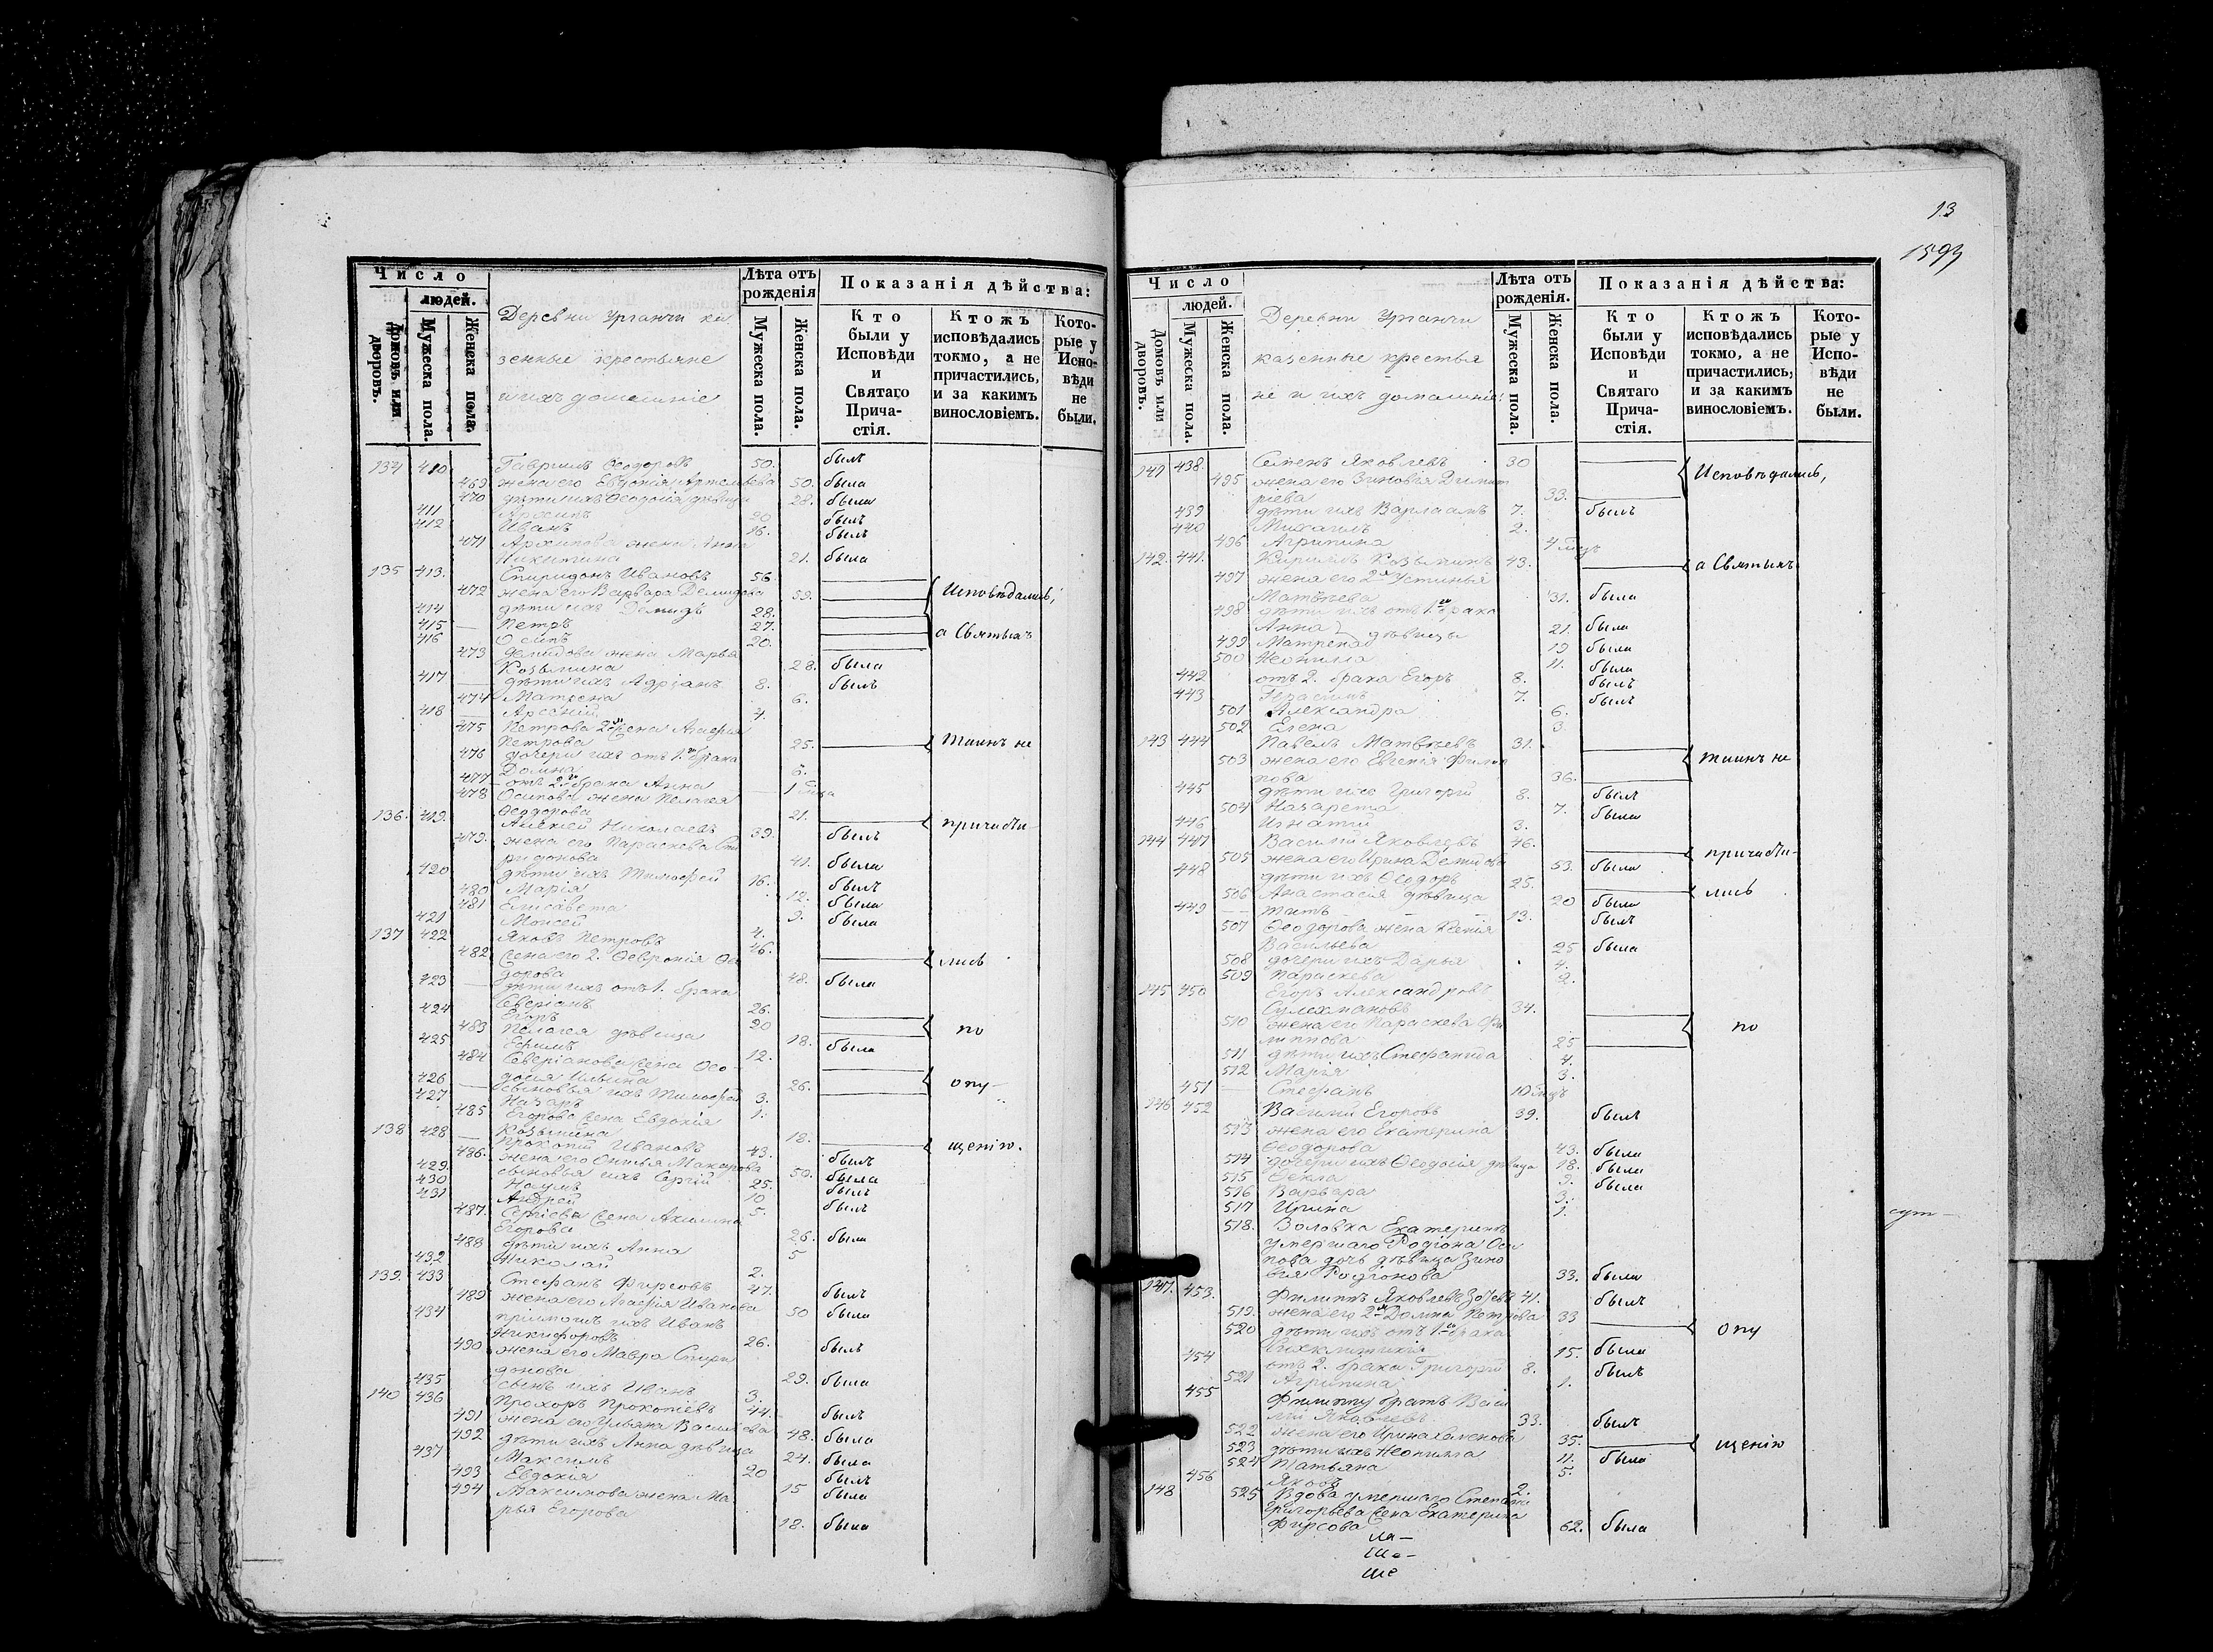 13
1593
Число
людей.
Домовъ или дворовъ.
Мужеска пола.
Женска пола.
Деревни Урганчи ка
зенные крестьяне
и ихъ домашніе
Лѣта отъ рожденія
Мужеска пола.
Женска пола.
Показанія дѣйства:
Кто были у Исповѣди и Святаго Причастія.
Ктожъ исповѣдались токмо, а не причастились, и за какимъ винословіемъ.
Которые у Исповѣди не были.
134 410 Гавріилъ Ѳеодоровъ 50. былъ
469 жена его Евдокія Артемьева 50. была
470 дѣти ихъ Ѳеодосія дѣвица 28. была
411 Архипъ 20 былъ
412 Иванъ 16. былъ
471 Архипова жена Анна
Никитина 21. была
135 413. Спиридонъ Ивановъ 56
472 жена его Варвара Демидова 59. Исповѣдались,
414 дѣти ихъ Демидъ 28.
415 Петръ 27.
416 Осипъ 20. а Святыхъ
473 Демидова жена Марѳа
Козьмина 28. была
417 дѣти ихъ Адріанъ 8. былъ
474 Матрена 6.
418 Арсеній 4.
475 Петрова 2я жена Агафія
Петрова 25. Таинъ не
476 дочери ихъ отъ 1го брака
Домна 6.
477 отъ 2го брака Анна 1 мѣ
478 Осипова жена Пелагея
Ѳеодорова 21. причасти-
136. 419. Алексій Николаевъ 39. былъ
479. жена его Параскева Спи
ридонова 41. была
420 дѣти ихъ Тимофей 16. былъ
480 Марія 12. была
481 Елисавета 9. была
421 Моисей 4.
137 422 Яковъ Петровъ 46.
482 жена его 2. Ѳевронія Ѳео лись
дорова 48. была
423 дѣти ихъ отъ 1. брака
Северіанъ 26.
424 Егоръ 20 по
483 Пелагея дѣвица 18. была
425 Ефимъ 12.
484 Северіанова жена Ѳео-
досія Ильина 26. опу-
426 сыновья ихъ Тимофей 3.
427 Назаръ 1.
485 Егорова жена Евдокія
Козьмина 18. щенію.
138 428 Прокопій Ивановъ 43. былъ
486. жена его Макарова 50. была
429. сыновья ихъ Сергій 25. былъ
430 Наумъ 10 былъ
431 Андрей 5.
487. Сергіева жена Акилина
Егорова 26. была
488 дѣти ихъ Анна 5
432 Николай 2.
139. 433 Стефанъ Фирсовъ 47. былъ
489 жена его Агафія Иванова 50 была
434 пріимышъ ихъ Иванъ
Никифоровъ 26. былъ
490 жена его Мавра Спири
донова 29. была
435 сынъ ихъ Иванъ 3.
140 436 Прохоръ Прокопіевъ 44. былъ
491 жена его Ульяна Васильева 48. была
492 дѣти ихъ Анна дѣвица 24. была
437 Максимъ 20 былъ
493 Евдокія 15 была
494 Максимова жена Ма
рья Егорова 18. была
Число
людей.
Домовъ или дворовъ.
Мужеска пола.
Женска пола.
Деревни Урганчи
казенные крестья
не и ихъ домашніе
Лѣта отъ рожденія.
Мужеска пола.
Женска пола.
Показанія дѣйства:
Кто были у Исповѣди и Святаго Причастія.
Ктожъ исповѣдались токмо, а не причастились, и за какимъ винословіемъ.
Которые у Исповѣди не были.
141 438. Семенъ Яковлевъ 30 Исповѣдались,
495 жена его Зиновія Димит
ріева 33.
439 дѣти ихъ Варлаамъ 7. былъ
440 Михаилъ 2.
496 Агрипина 4 мѣ
142. 441. Кирилъ Козьминъ 43. а Святыхъ
497 жена его 2я Устинья
Матвѣева 31. была
498 дѣти ихъ отъ 1го брака
Анна 21. была
499 Матрена дѣвицы 19 была
500 Неонила 11. была
442 отъ 2. брака Егоръ 8. былъ
443 Герасимъ 7. былъ
501 Александра 6.
502 Елена 3
143 444 Павелъ Матвѣевъ 31.
503 жена его Евгенія Филип Таинъ не
пова 36.
445 дѣти ихъ Григорій 8. былъ
504 Назарета 7. была
446 Игнатій 3.
144 447 Василій Яковлевъ 46.
505 жена его Ирина Демидова 53. была причасти-
448 дѣти ихъ Ѳеодоръ 25. лись
506 Анастасія дѣвица 20 была
449 Титъ 13. былъ
507 Ѳеодорова жена Ксенія
Васильева 25 была
508 дочери ихъ Дарья 4.
509 Параскева 2.
145 450 Егоръ Александровъ
34.
510 жена его Параскева Фи по
липпова 25
511 дѣти ихъ Стефанида 4.
512 Марія 3.
451 Стефанъ 10 мѣ
146 452 Василій Егоровъ 39. былъ
513 жена его Екатерина
Ѳеодорова 43. была
514 дочери ихъ Ѳеодосія дѣвица 18. была
515 Ѳекла 9. была
516 Варвара 3.
517 Ирина 1.
518. Золовка Екатерины
умершаго Родіона Оси
пова дочь дѣвица Зино
вія Родіонова 33. была
147. 453. Филиппъ Яковлевъ 41. былъ
519. жена его 2я Домна Петрова 33 опу
520 дѣти ихъ отъ 1го брака
15. была
454 отъ 2. брака Григорій 8. былъ
521 Агрипина 1.
455 Филиппу братъ Васи
лій Яковлевъ 33. былъ
522 жена его Ирина 35. щенію
523 дѣти ихъ Неонилла 11. была
524 Татьяна 5.
456 Яковъ 2.
148 525 Вдова умершаго Степана
Григорьева жена Екатерина
Фирсова 62. была